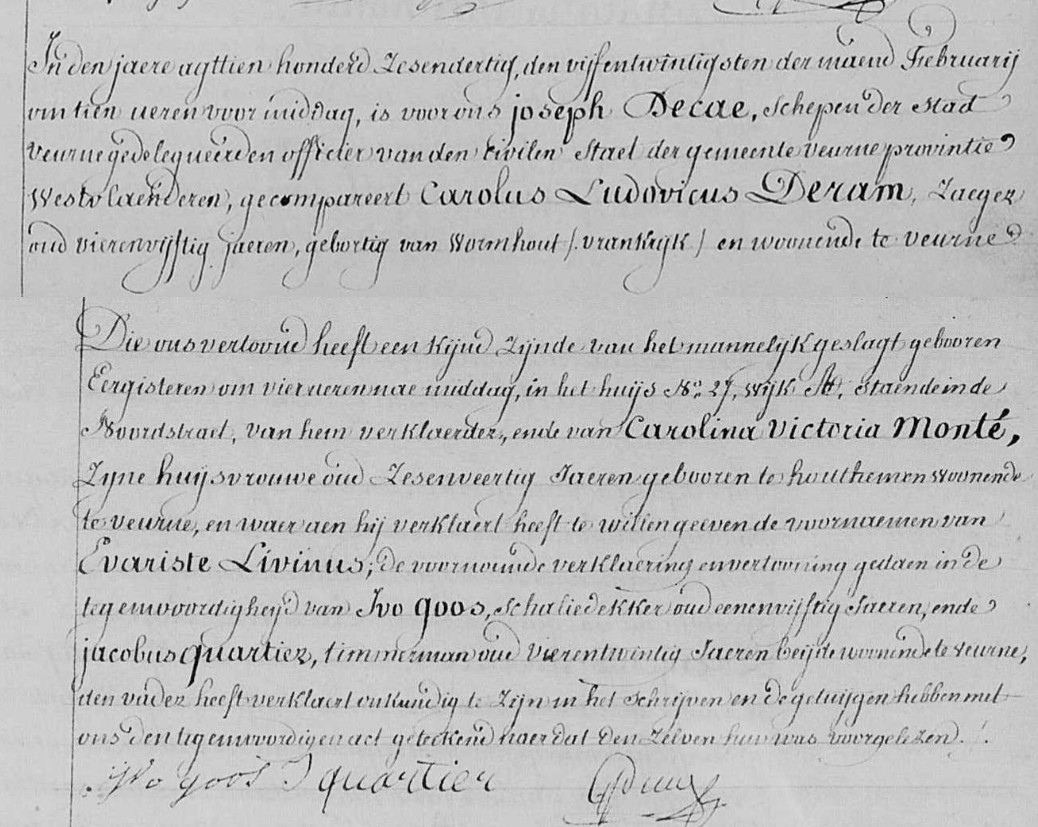 In den jaere agttien honderd Zesendertig, den vijfentwintigsten der maend Februarij
om tien ueren voormiddag, is voor ons joseph Decae, Schepen der Stad
Veurne gedelegueerden officier van den Civilen Staet der gemeente veurne provintie
Westvlaenderen, gecompareert Carolus Ludovicus Deram, Zaeger
oud vierenvijftig jaeren, gebortig van Wormhout /: vrankrijk / en woonende te veurne
Die ons vertoond heeft een kijnd Zijnde van het mannelijk geslagt gebooren
Eergisteren om vier ueren nae middag, in het huijs No. 27, Wijk A, Staende in de
Noordstraet, van hem verklaerder, ende van Carolina Victoria Monté,
Zijne huijsvrouwe oud Zesenveertig Jaeren gebooren te houthem en Woonende
te veurne, en waer aen hij verklaert heeft te willen geeven de voornaemen van
Evariste Livinus; de voornoemde verklaering en vertooning gedaen in de
tegenwoordigheijd van Ivo goos, Schaliedekker oud eenenvijftig Jaeren, ende
jacobus quartier, timmerman oud Vierentwintig Jaeren beijde woonende te veurne,
den vader heeft verklaert onkundig te Zijn in het Schrijven en de getuijgen hebben met
ons den tegenwoordigen act geteekend naer dat den Zelven hun was voorgelezen.
Ivo goos J quartier